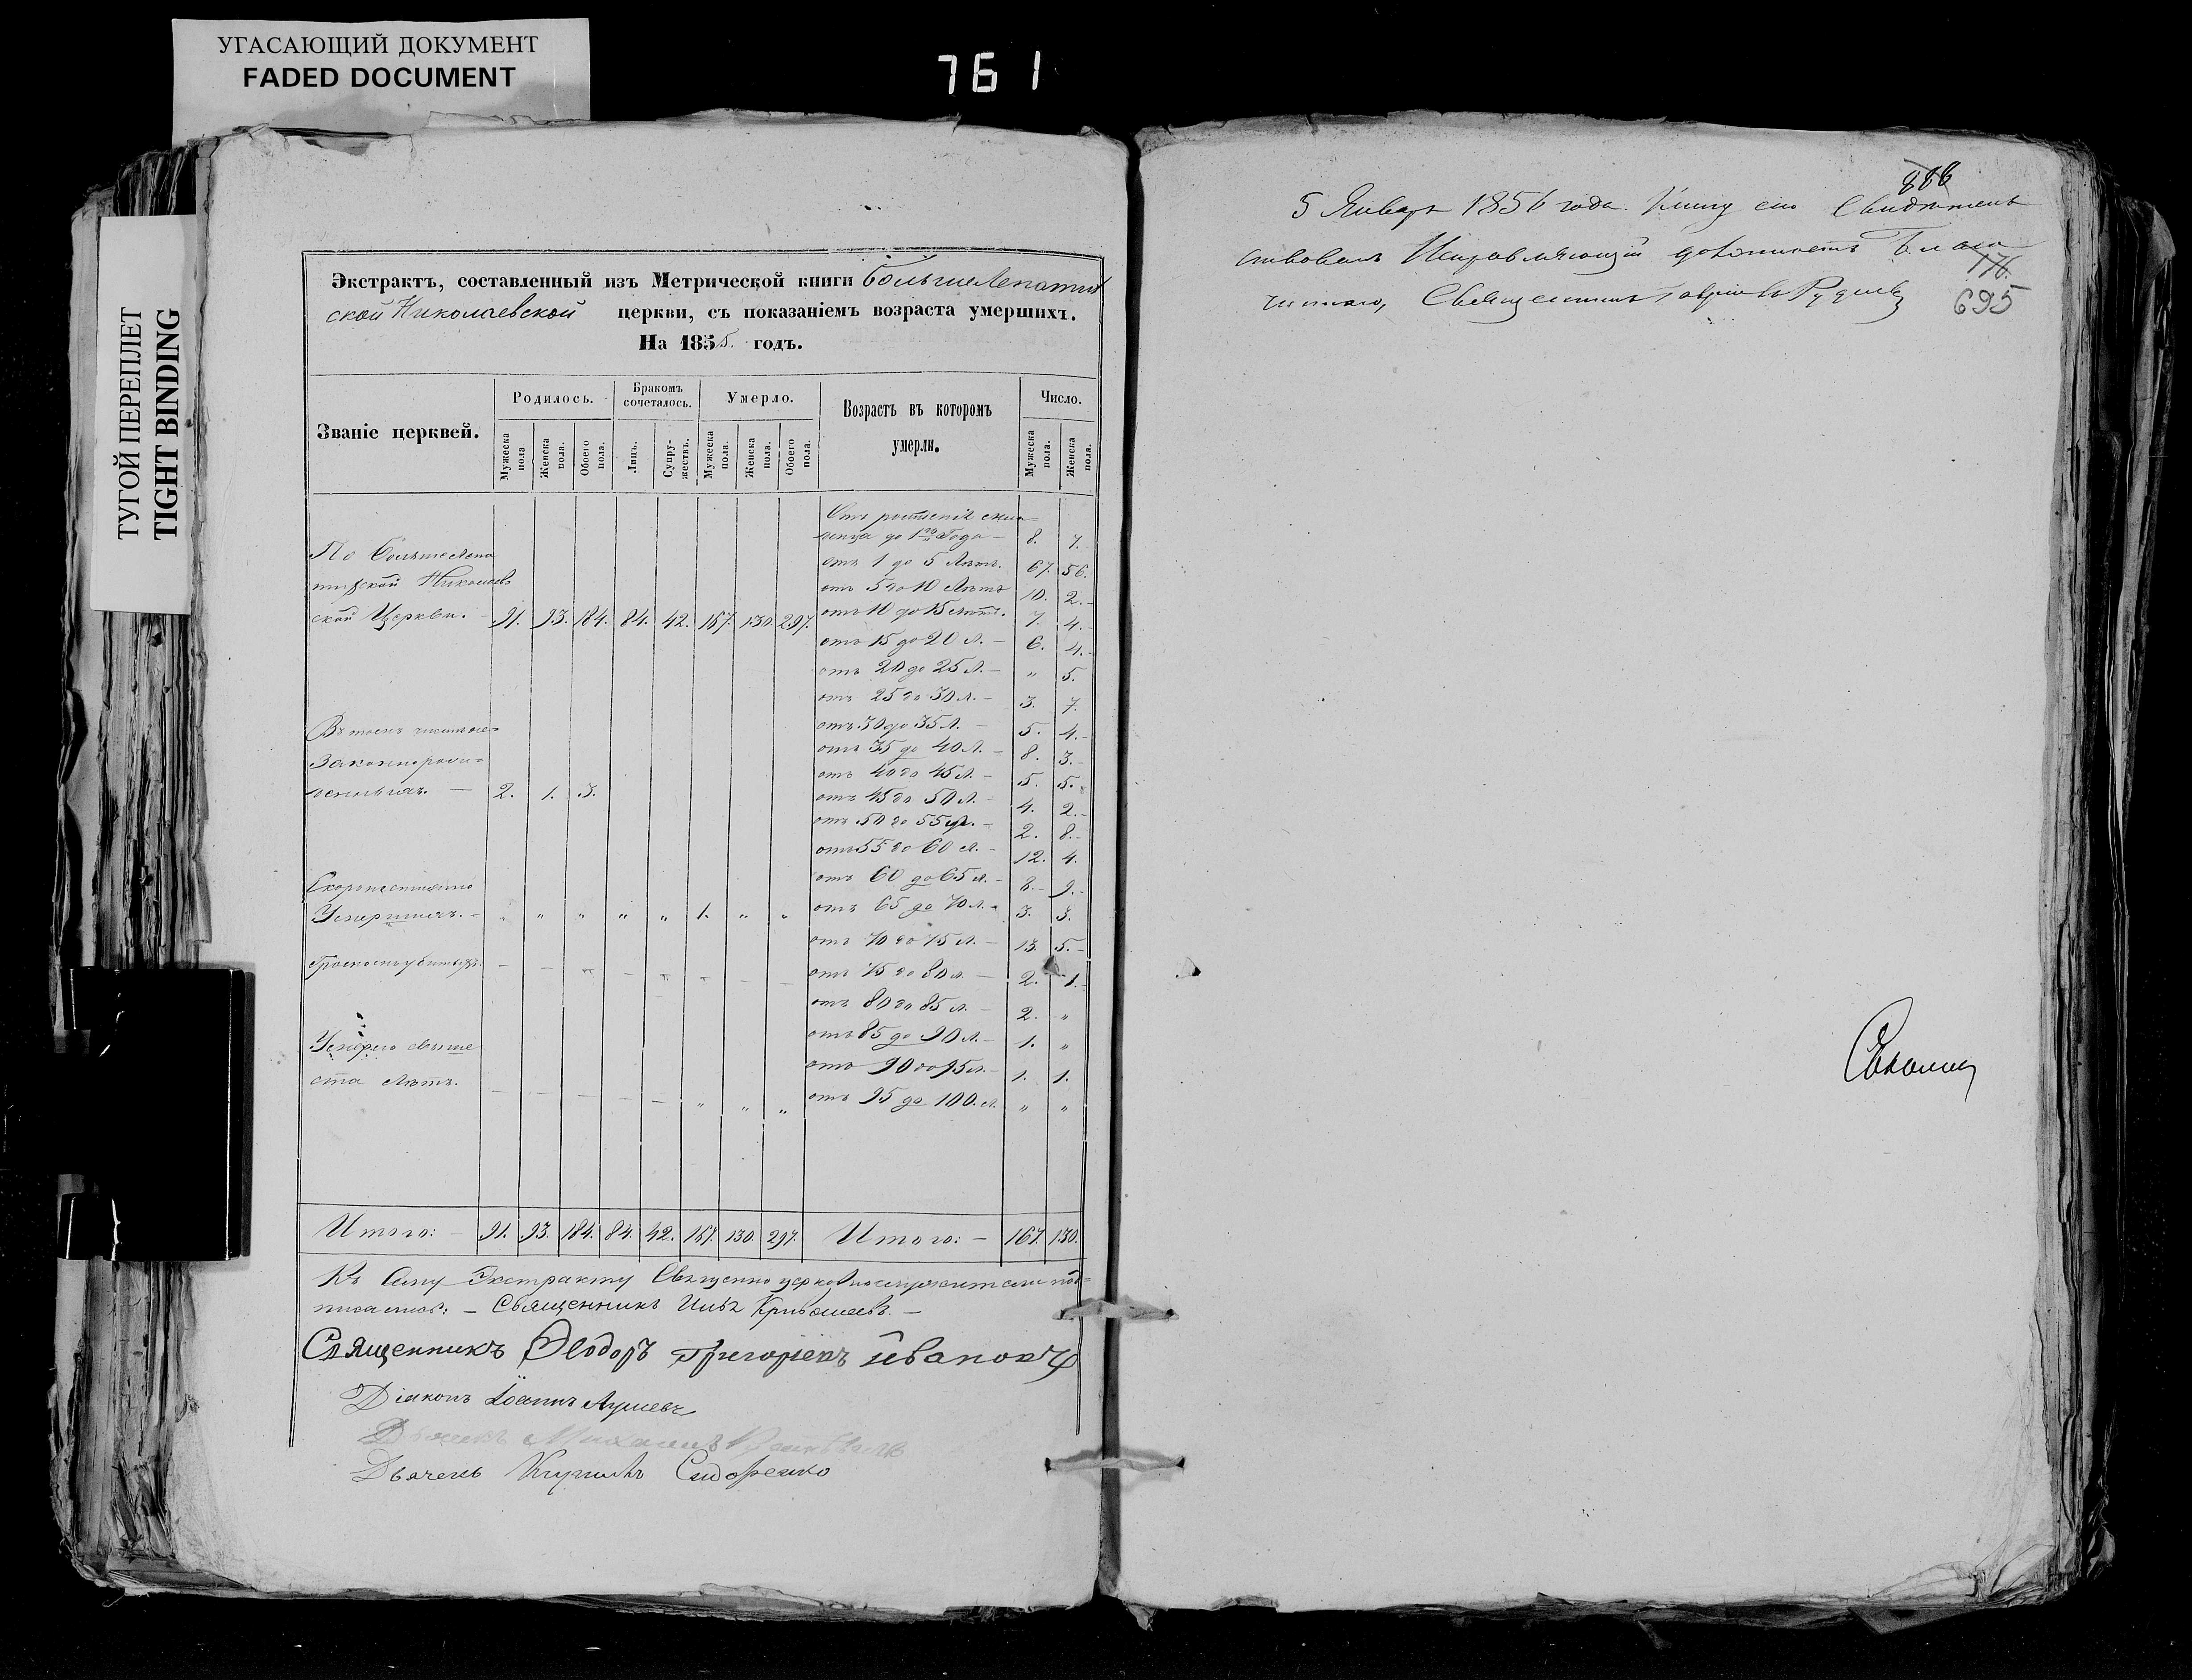 УГАСАЮЩИЙ ДОКУМЕНТ
FADED DOCUMENT
761
ТУГОЙ ПЕРЕПЛЕТ
TIGHT BINDING
Экстрактъ, составленный изъ Метрической книги
ской Николаевской церкви, съ показаніемъ возраста умершихъ.
На 1855. годъ.
Званіе церквей.
Родилось.
Бракомъ сочеталось.
Умерло.
Возрастъ въ которомъ умерли.
Число.
Мужеска пола
Женска пола.
Обоего пола.
Лицъ.
Супружествъ.
Мужеска пола.
Женска пола.
Обоего пола.
Мужеска пола.
Женска пола.
до 1го Года — 8. 7.
отъ 1 до 5 Лѣтъ. 67. 56.
отъ 5 до 10 Лѣтъ 10. 2.
ской Церкви. — 91. 93. 184. 84. 42. 167. 130. 297. отъ 10 до 15 лѣтъ. 7. 4.
отъ 15 до 20 л. — 6. 4.
отъ 20 до 25 л. — " 5.
отъ 25 до 30 л. — 3. 7.
отъ 30 до 35 л. — 5. 4.
отъ 35 до 40 л. — 8. 3.
отъ 40 до 45 л. — 5. 5.
2. 1. 3. отъ 45 до 50 л. — 4. 2.
отъ 50 до 55 л. — 2. 8.
отъ 55 до 60 л. — 12. 4.
отъ 60 до 65 л. — 8. 9.
Умершихъ. — " " " " " 1. " " отъ 65 до 70 л. — 3. 3.
отъ 70 до 75 л. — 13. 5.
отъ 75 до 80 л. — 2. 1.
отъ 80 до 85 л. — 2. "
Умерло свыше отъ 85 до 90 л. — 1. "
ста лѣтъ. отъ 90 до 95 л. — 1. 1.
отъ 95 до 100. л. " "
Итого: — 91. 93. 184. 84. 42. 167. 130. 297. Итого: — 167. 130.
Къ сему Экстракту Священно церковнослужители под=
писались: — Священникъ Илья
Священникъ Ѳеодоръ Григоріевъ
Діаконъ Іоаннъ
Дьячекъ Михаилъ
Дьячекъ Сидоренко
888
5 Января 1856 года. Книгу сію Свидѣтель
ствовалъ Исправляющій должность Благо
176.
чиннаго, Священникъ
695